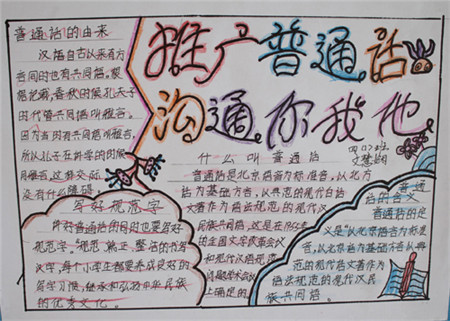 推广普通话
沟通你我他
四(2)班
普通话的由来
汉语自古以来有方
言同时也有共同语。根
据记载,春秋时候,孔夫子
时代管共同语叫雅言。
因为当时有共同语叫雅言,
所以孔子在讲学的时候
用雅言,这样交际
没有什么障碍。
写好规范字
讲好普通话的同时也要写好
规范字。"规范、端正、整洁的书写
汉字,每个小学生都要养成良好的
写字习惯,继承和弘扬中华民族
的优秀文化。
什么叫普通话
普通话是北京语音为标准音,以北方
话为基础方言,以典范的现代白话
文著作为语法规范的现代汉
民族共同语,这是在1955年
的全国文字改革会议
和现代汉语规范
问题学术会议
上确定的。
普通
话的含义
普通话的定
义是"以北京语音为标准
音,以北方话为基础方言,以典
范的现代白话文著作为
语法规范的现代汉民
族共同语。